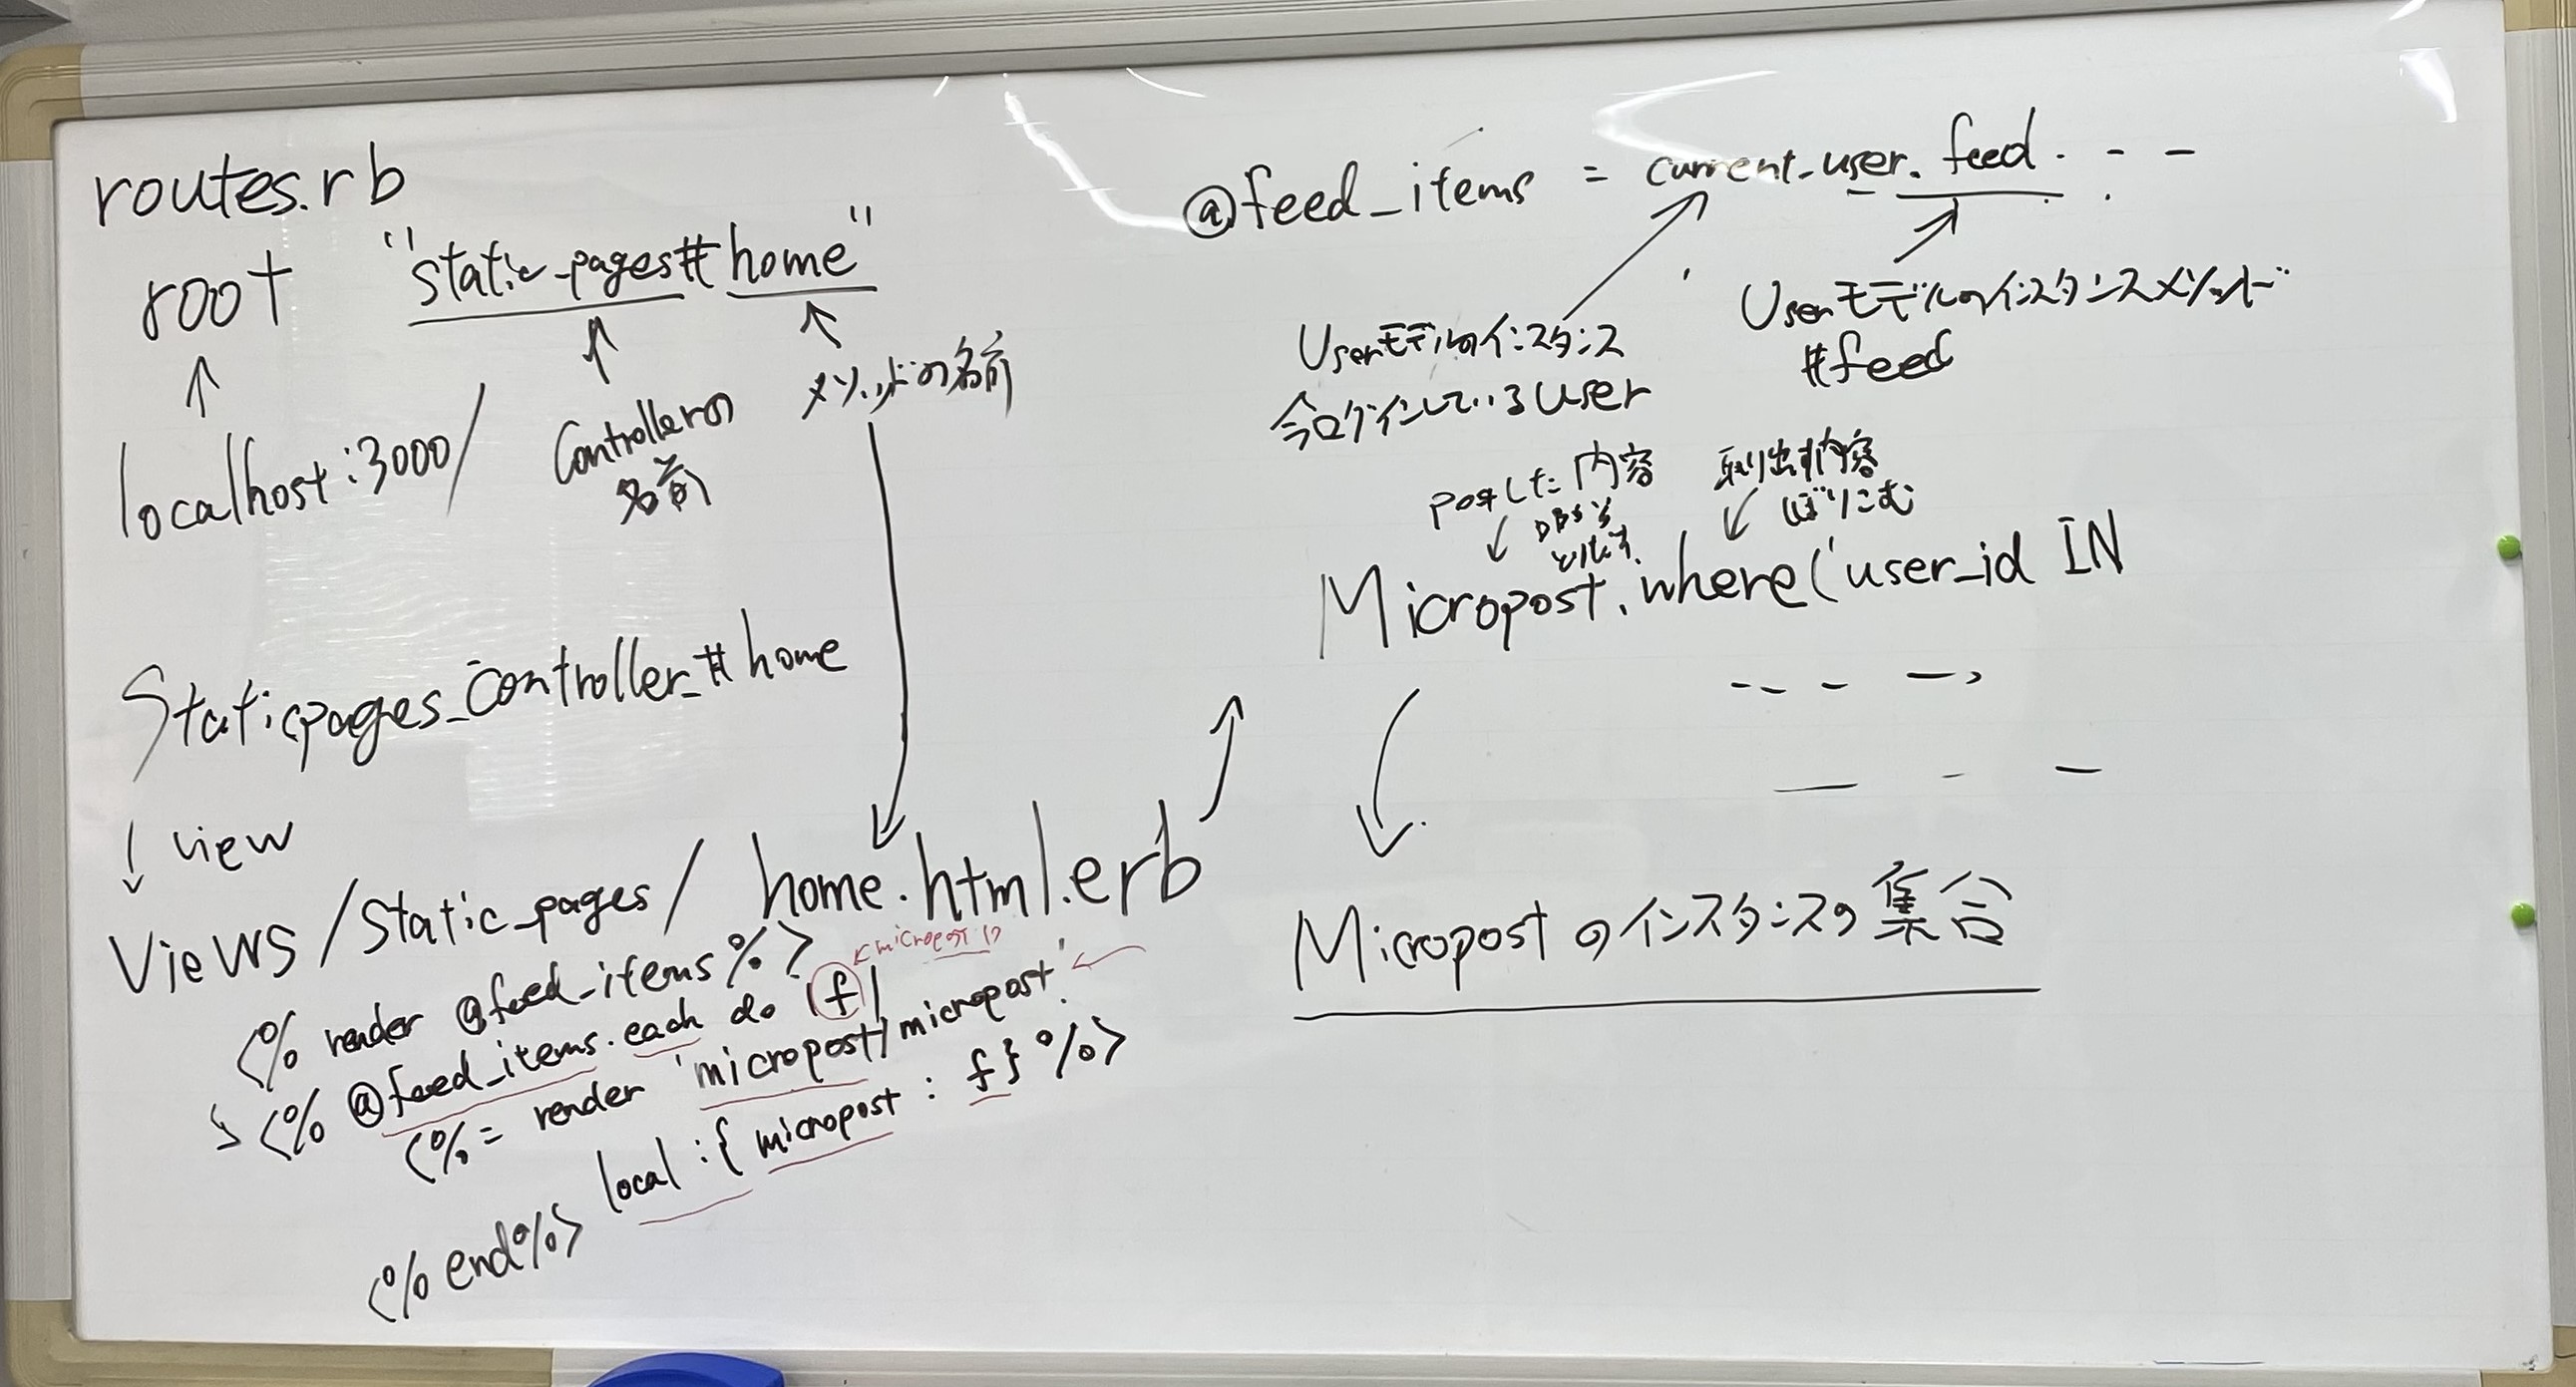 routes.rb
root "static_pages#home"
localhost:3000/
Controllerの
名前
メソッドの名前
Staticpages_Controller_#home
view
Views/Static_pages/ home.html.erb
<% render @feed_items %>
<% @feed_items.each do |f|
micropost
<%= render 'micropost/micropost'
local:{ micropost: f} %>
<% end %>
@feed_items = current_user.feed. - -
Userモデルのインスタンス
今ログインしているuser
Userモデルのインスタンスメソッド
#feed
postした内容
DBから
取り出す内容
しぼりこむ
Micropost.where('user_id IN
Micropostのインスタンスの集合